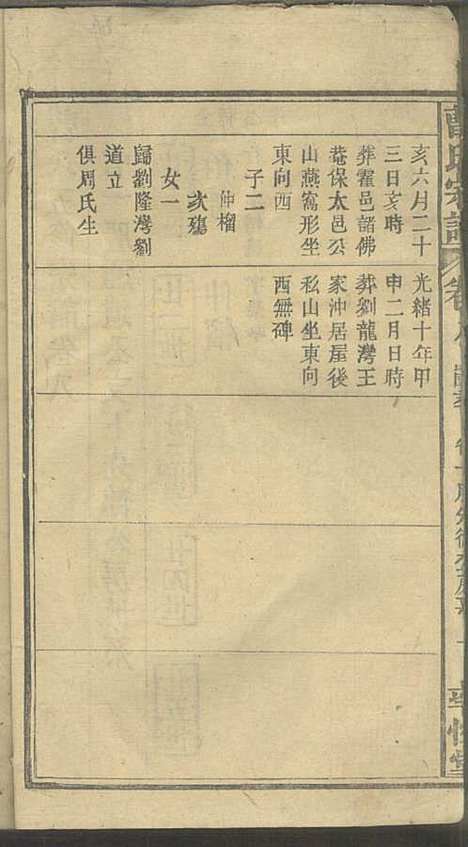 亥六月二十
三日亥時
葬霍邑諸佛
菴保太邑公
山燕窩形坐
東向西
子二
仲榴
次殤
女一
歸劉隆灣劉
道立
俱周氏生
光緒十年甲
申二月日時
葬劉龍灣王
家沖居崖後
私山坐東向
西無碑
氏宗譜
卷